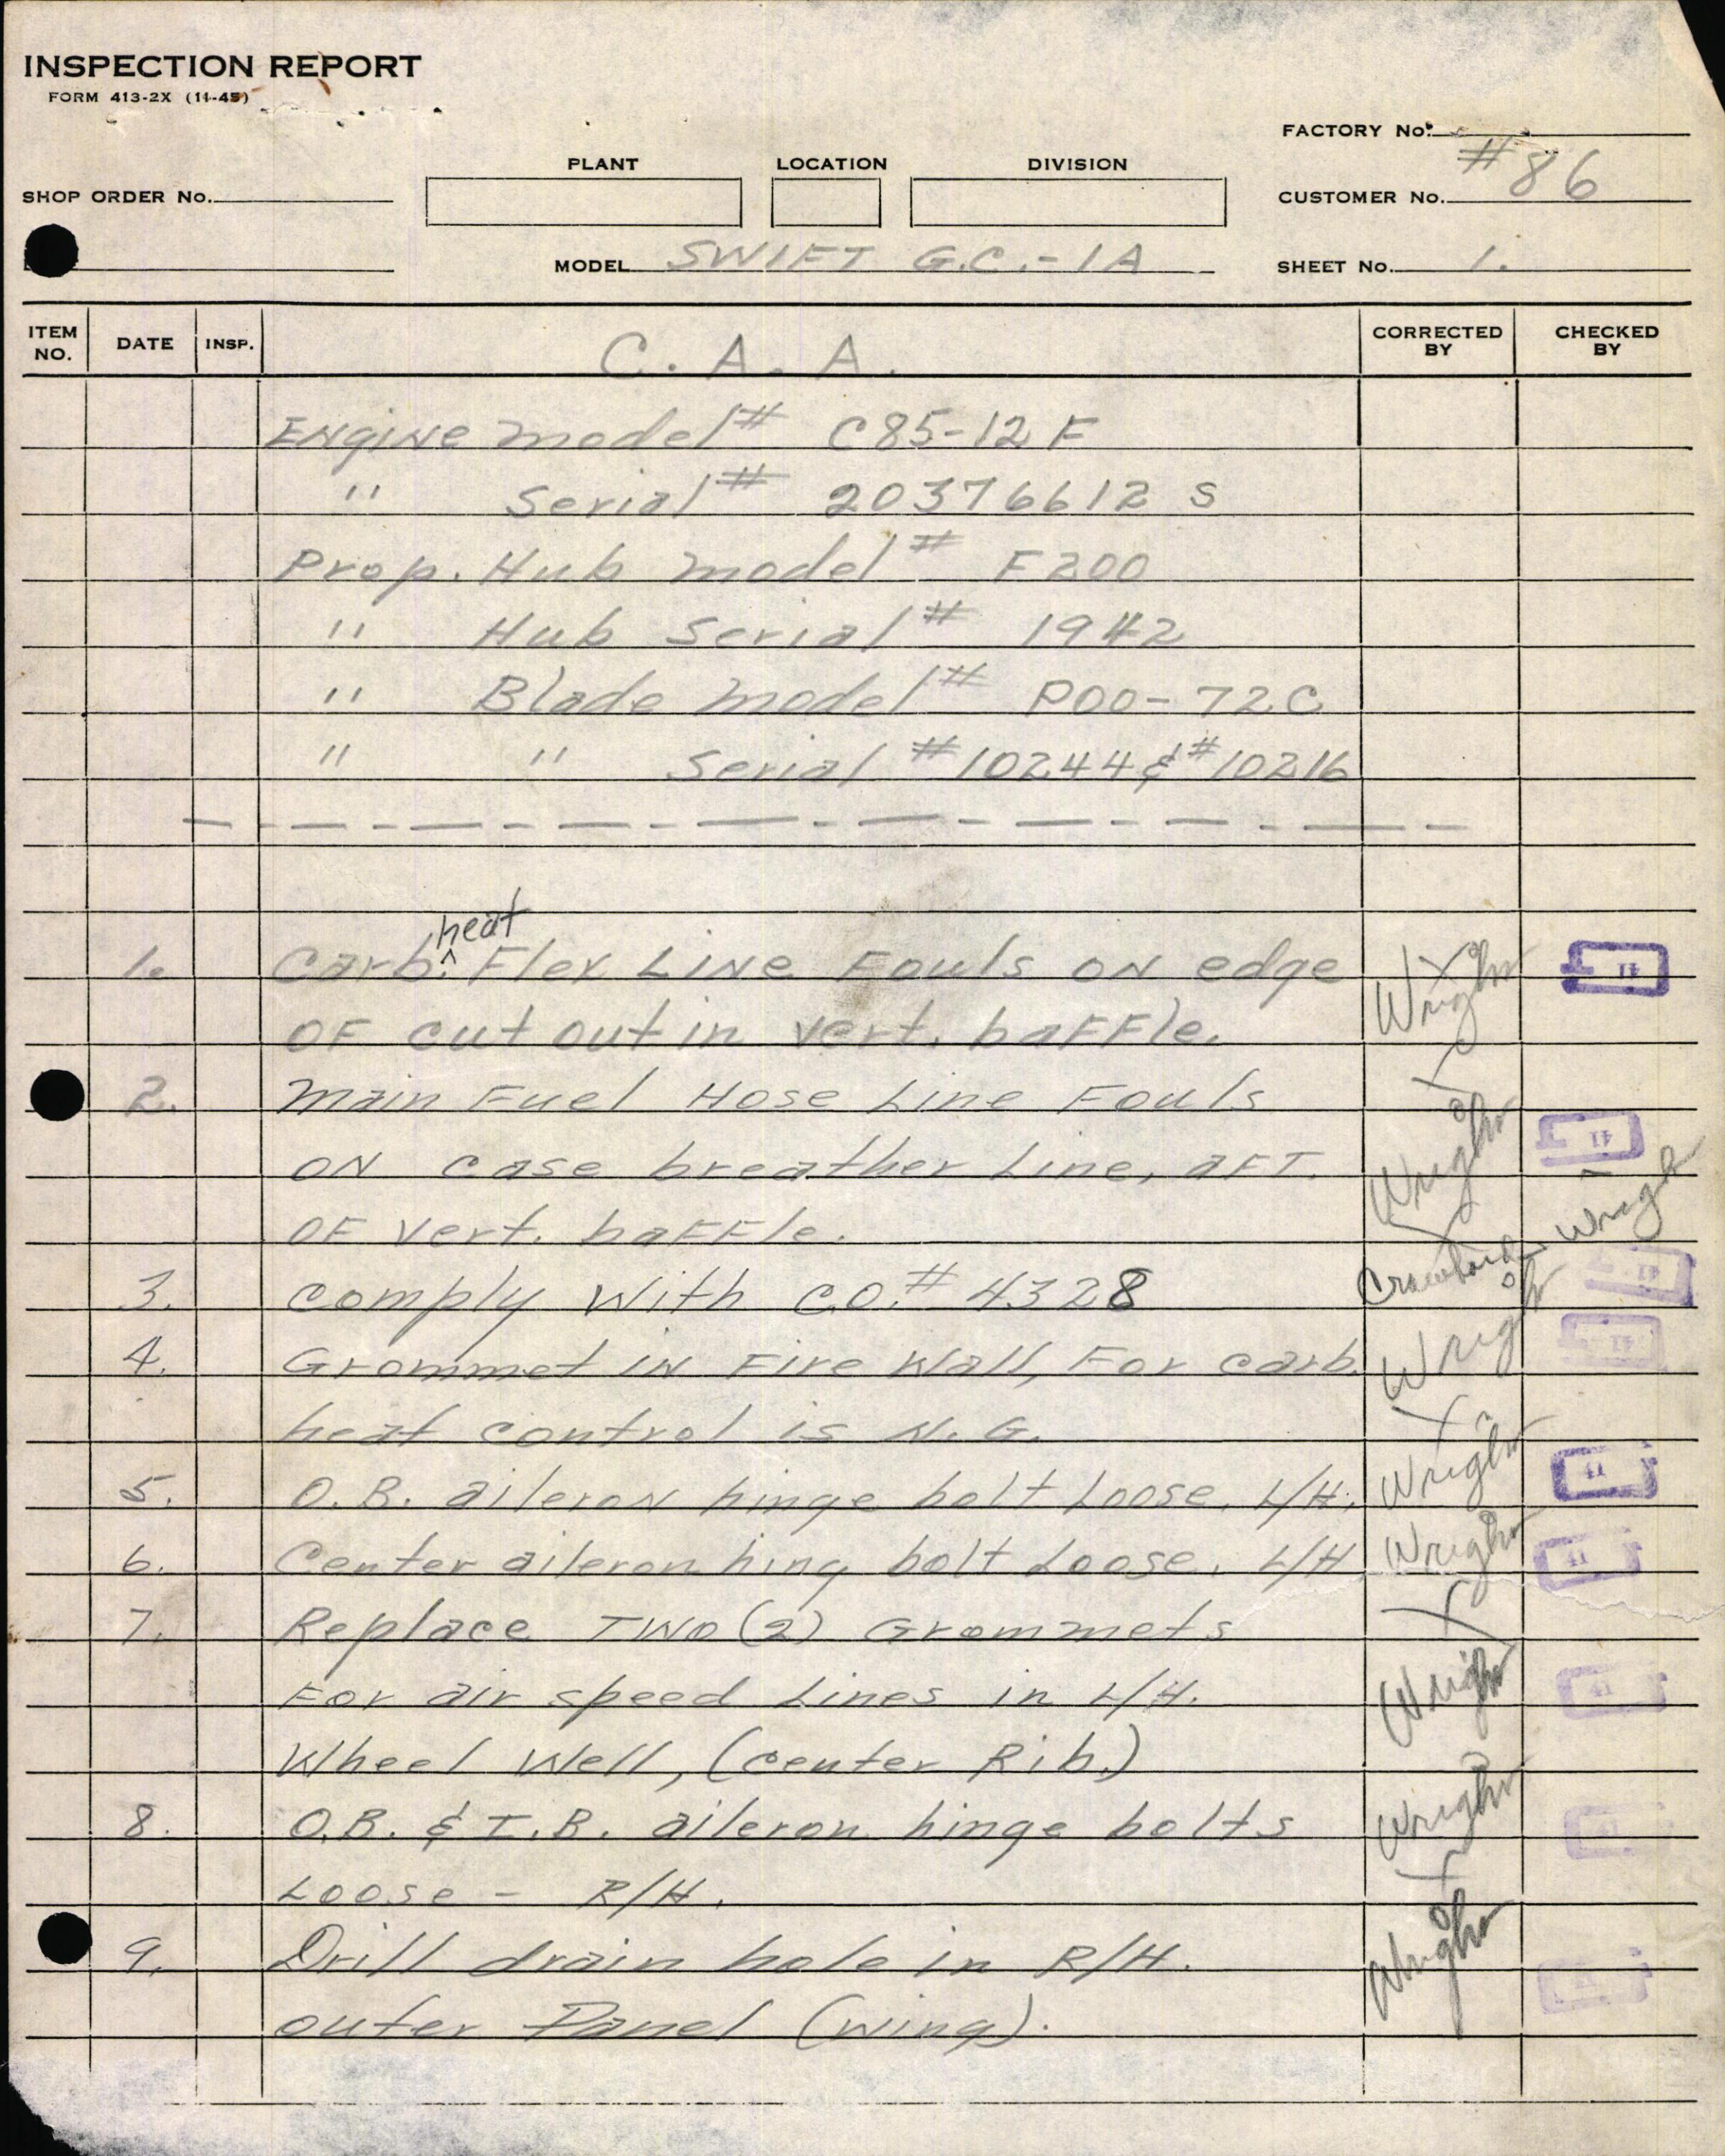 INSPECTION REPORT
FORM 413-2X (11-45)
FACTORY No.
PLANT LOCATION DIVISION
#86
SHOP ORDER No. CUSTOMER No.
MODEL SWIFT G.C.-1A SHEET No. 1.
ITEM NO. DATE INSP. C. A. A. CORRECTED BY CHECKED BY
ENgiNe model # C85-12F
" Serial # 20376612 S
Prop. Hub model # F200
" Hub Serial # 1942
" Blade model # P00-72C
" " Serial #10244 & #10216
heat
1. Carb. ^ Flex LiNe Fouls ON edge Wright 41
OF cut out in vert. baffle.
2. Main Fuel Hose Line Fouls Wright 41
ON case breather Line, aFT.
OF vert. baffle.
3. Comply With C.O.# 4328 Crawford - Wright 41
4. Grommet iN Fire Wall, For carb. Wright 41
heat control is N.G.
5. O.B. aileroN hinge bolt Loose. L/H. Wright 41
6. Center aileron hing bolt Loose. L/H Wright 41
7. Replace TWO (2) Grommets Wright 41
For air speed Lines in L/H.
Wheel Well, (center Rib.)
8. O.B. & I.B. aileron hinge bolts Wright 41
Loose - R/H.
9. Drill drain hole in R/H. Wright
outer Panel (wing).